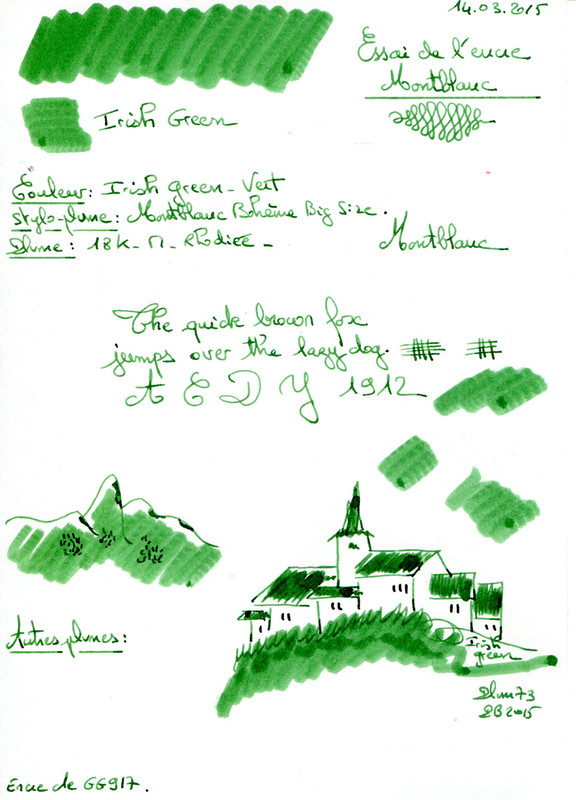 14.03.2015
Essai de l'encre
Montblanc
Irish Green
Couleur : Irish green - Vert
Stylo-plume : Montblanc Bohème Big Size.
Plume : 18K - M - Rhodiée -
Montblanc
The quick brown fox
jumps over the lazy dog.
A E D Y 1912
Autres plumes :
Irish
green
Plum73
2015
Encre de GG917.